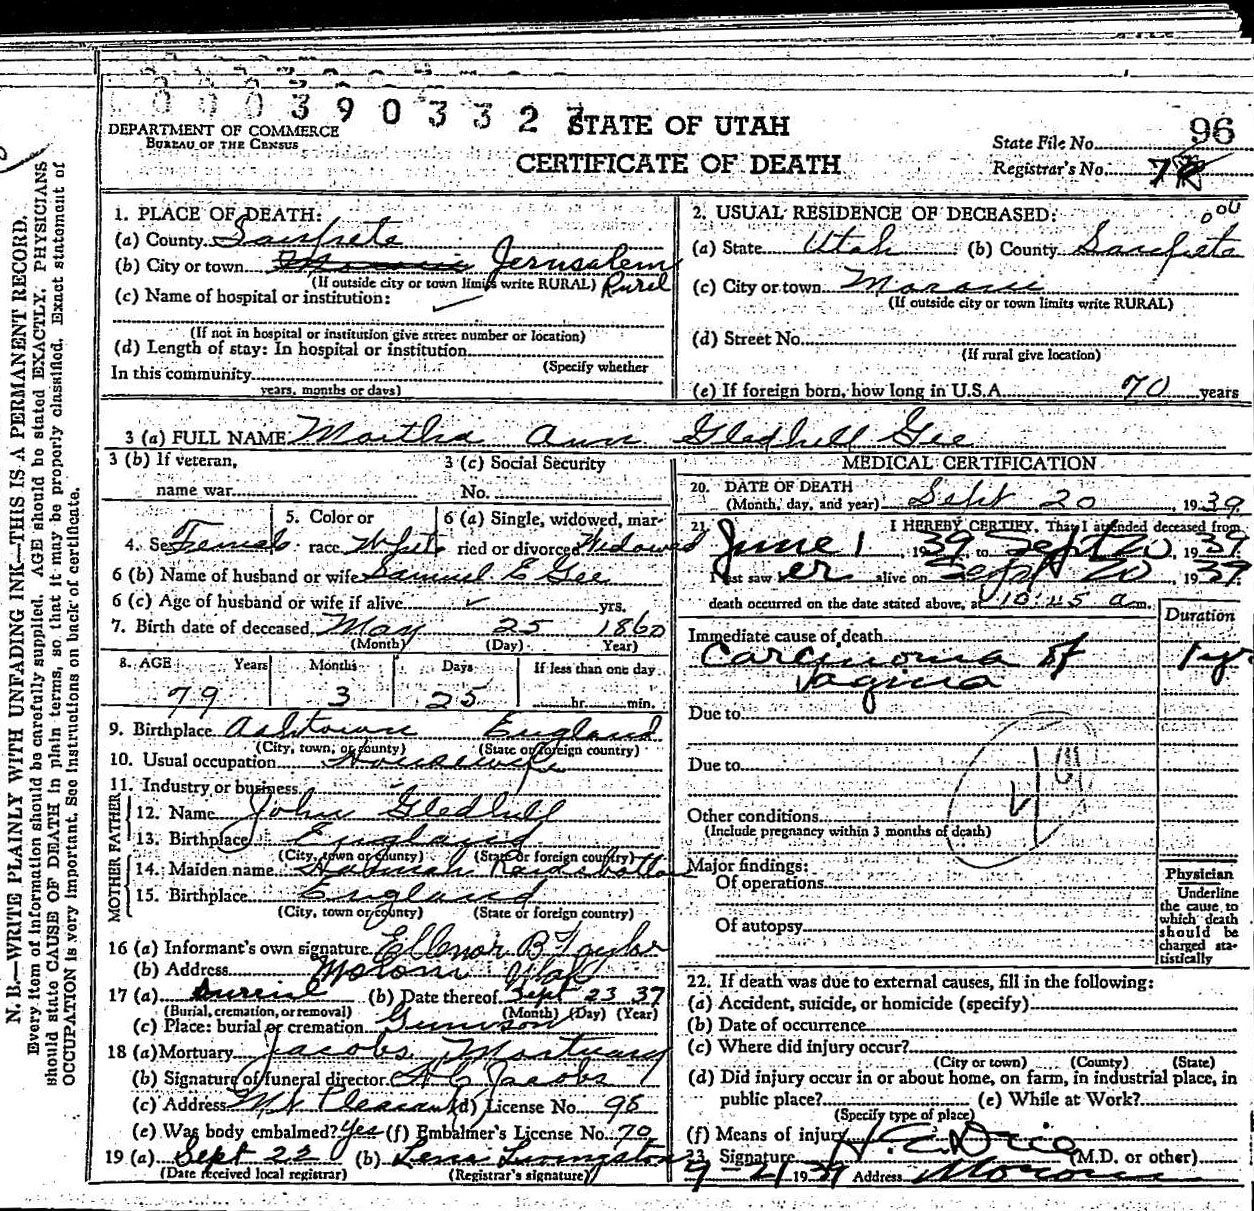 0 0 0 3 9 0 3 3 2
DEPARTMENT OF COMMERCE
BUREAU OF THE CENSUS
STATE OF UTAH
CERTIFICATE OF DEATH
State File No. 96
Registrar's No.
N. B.—WRITE PLAINLY WITH UNFADING INK—THIS IS A PERMANENT RECORD.
Every item of information should be carefully supplied. AGE should be stated EXACTLY. PHYSICIANS
should state CAUSE OF DEATH in plain terms, so that it may be properly classified. Exact statement of
OCCUPATION is very important. See instructions on back of certificate.
1. PLACE OF DEATH:
(a) County Sanpete
(b) City or town Jerusalem
(If outside city or town limits write RURAL) Rural
(c) Name of hospital or institution:
(If not in hospital or institution give street number or location)
(d) Length of stay: In hospital or institution
(Specify whether
In this community
years, months or days)
2. USUAL RESIDENCE OF DECEASED:
(a) State Utah (b) County Sanpete
(c) City or town Moroni
(If outside city or town limits write RURAL)
(d) Street No.
(If rural give location)
(e) If foreign born, how long in U.S.A. 70 years
3 (a) FULL NAME Martha Ann Gledhill Gee
3 (b) If veteran, name war
3 (c) Social Security No.
4. Sex Female
5. Color or race White
6 (a) Single, widowed, married or divorced Widowed
6 (b) Name of husband or wife Samuel E Gee
6 (c) Age of husband or wife if alive yrs.
7. Birth date of deceased May 25 1860
(Month) (Day) Year)
8. AGE Years Months Days If less than one day
79 3 25 hr. min.
9. Birthplace Ashtown England
(City, town, or county) (State or foreign country)
10. Usual occupation Housewife
11. Industry or business
FATHER
12. Name John Gledhill
13. Birthplace England
(City, town or county) (State or foreign country)
MOTHER
14. Maiden name Hannah
15. Birthplace England
(City, town or county) (State or foreign country)
16 (a) Informant's own signature Ellenor B Taylor
(b) Address Moroni Utah
17 (a) Burial (b) Date thereof Sept 23 39
(Burial, cremation, or removal) (Month) (Day) (Year)
(c) Place: burial or cremation Gunnison
18 (a) Mortuary Jacobs Mortuary
(b) Signature of funeral director A C Jacobs
(c) Address Mt Pleasant (d) License No. 98
(e) Was body embalmed? Yes (f) Embalmer's License No. 70
19 (a) Sept 22 (b) Lena Livingston
(Date received local registrar) (Registrar's signature)
MEDICAL CERTIFICATION
20. DATE OF DEATH
(Month, day, and year) Sept 20, 1939
21. I HEREBY CERTIFY, That I attended deceased from
June 1, 1939 to Sept 20, 1939
I last saw her alive on Sept 20, 1939
death occurred on the date stated above, at 10:45 am.
Duration
Immediate cause of death
Carcinoma of 1 yr
vagina
Due to
Due to
Other conditions
(Include pregnancy within 3 months of death)
Major findings:
Of operations
Of autopsy
Physician
Underline
the cause to
which death
should be
charged sta-
tistically
22. If death was due to external causes, fill in the following:
(a) Accident, suicide, or homicide (specify)
(b) Date of occurrence
(c) Where did injury occur?
(City or town) (County) (State)
(d) Did injury occur in or about home, on farm, in industrial place, in
public place? (e) While at Work?
(Specify type of place)
(f) Means of injury
23. Signature (M.D. or other)
9-21 1939 Address Moroni